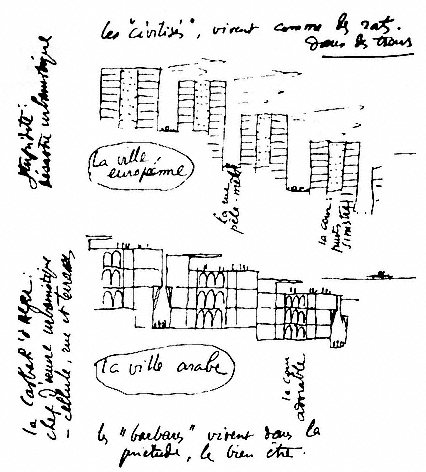 les "civilisés", vivent comme des rats
dans des trous
stupidité:
désastre urbanistique
la ville
européenne
la rue
pêle-mêle
la cour:
puits
sinistre
la Casbah d'Alger:
chef d'œuvre urbanistique
- cellule, rue et terrasses
la ville arabe
la cour
adorable
les "barbares" vivent dans la
quiétude, le bien être.